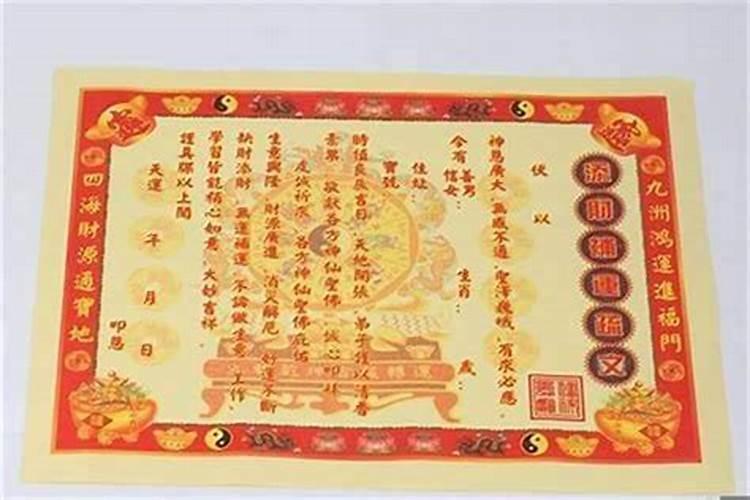 九洲鴻運進福門
添財補運疏文
伏以
神恩廣大 無感不通 聖澤巍峨 有求必應
今有善男信女： 生肖： 歲：
住址：
寶號：
時值良辰吉日 天地開張 弟子僅以清香
素果 敬獻各方神仙聖佛 誠心叩拜
誠祈求 各方神仙聖佛庇佑
生意興隆 財源廣進 消災解厄 好運不斷
缺財添財 無運補運 不論做生意、工作、
學習皆能稱心如意 大妙吉祥
謹具疏以上聞
天運 年 月 日
叩恩
四海財源通寶地